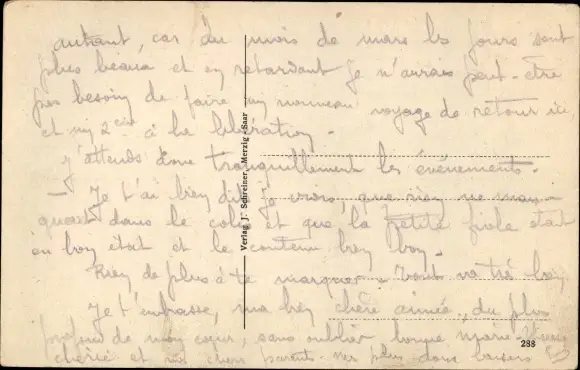 autant, car du mois de mars les jours sont
plus beaux et en retardant je n'aurais peut-être
pas besoin de faire un nouveau voyage de retour ici,
et un 2ème à la libération.
J'attends donc tranquillement les événements.
- Je t'ai bien dit, je crois, que rien ne man-
quait dans le colis et que la petite fiole était
en bon état et le contenu bien bon.
Rien de plus à te marquer. Tout va très bien.
Je t'embrasse, ma bien chère aimée, du plus
profond de mon cœur, sans oublier bonne
chérie et nos chers parents. Mes plus doux baisers
Verlag J. Schreiner, Merzig-Saar
288